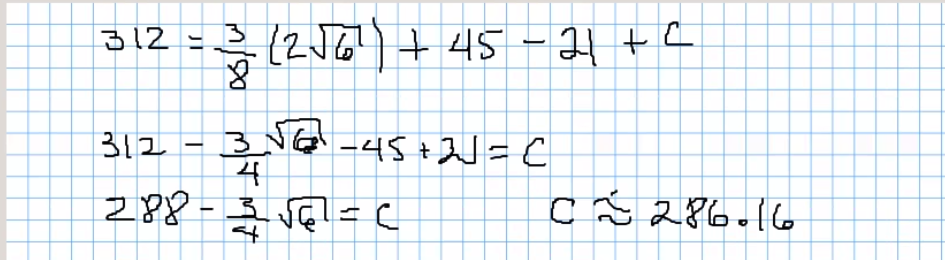 312 = 3/8 (2√6) + 45 - 21 + C
312 - 3/4 √6 - 45 + 21 = C
288 - 3/4 √6 = C C ≈ 286.16